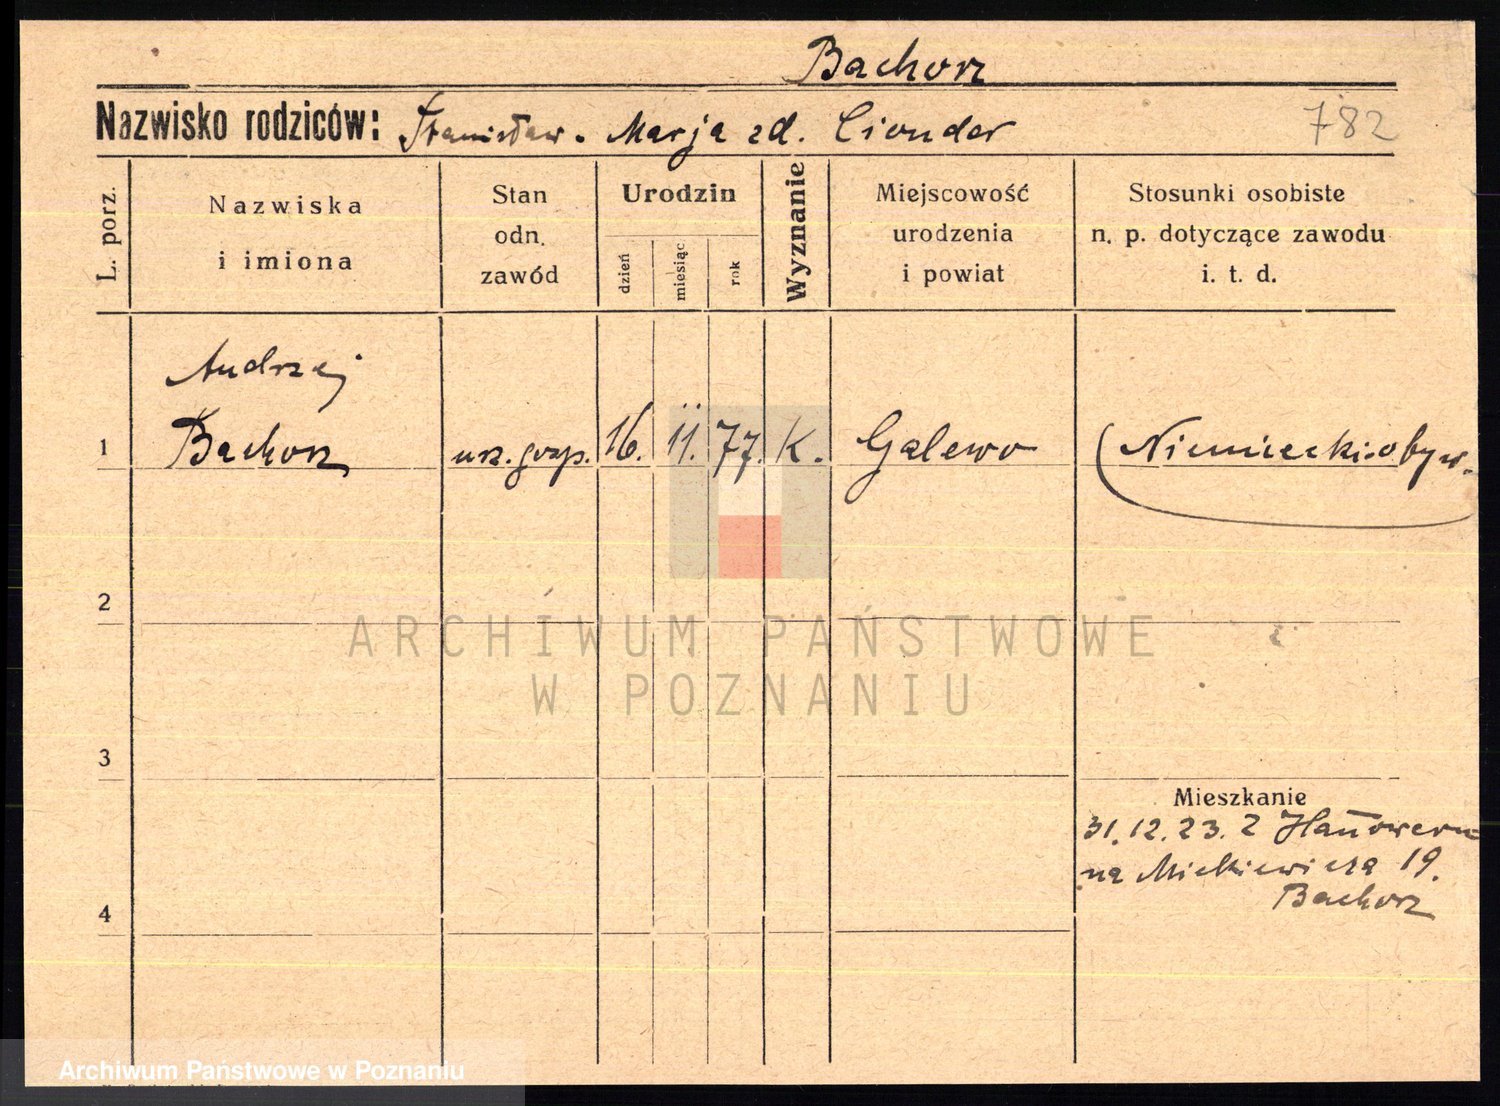 Bachorz
Nazwisko rodziców: Stanisław. Marja zd. Ciondar
782
L. porz.
Nazwiska
i imiona
Stan
odn.
zawód
Urodzin
dzień
miesiąc
rok
Wyznanie
Miejscowość
urodzenia
i powiat
Stosunki osobiste
n. p. dotyczące zawodu
i. t. d.
Andrzej
1 Bachorz urz. gosp. 16. 11. 77. K. Galewo (Niemiecki obyw.
2
ARCHIWUM PAŃSTWOWE
W POZNANIU
3
Mieszkanie
31.12.23. z Hanoweru
na Mickiewicza 19.
Bachorz
4
Archiwum Państwowe w Poznaniu